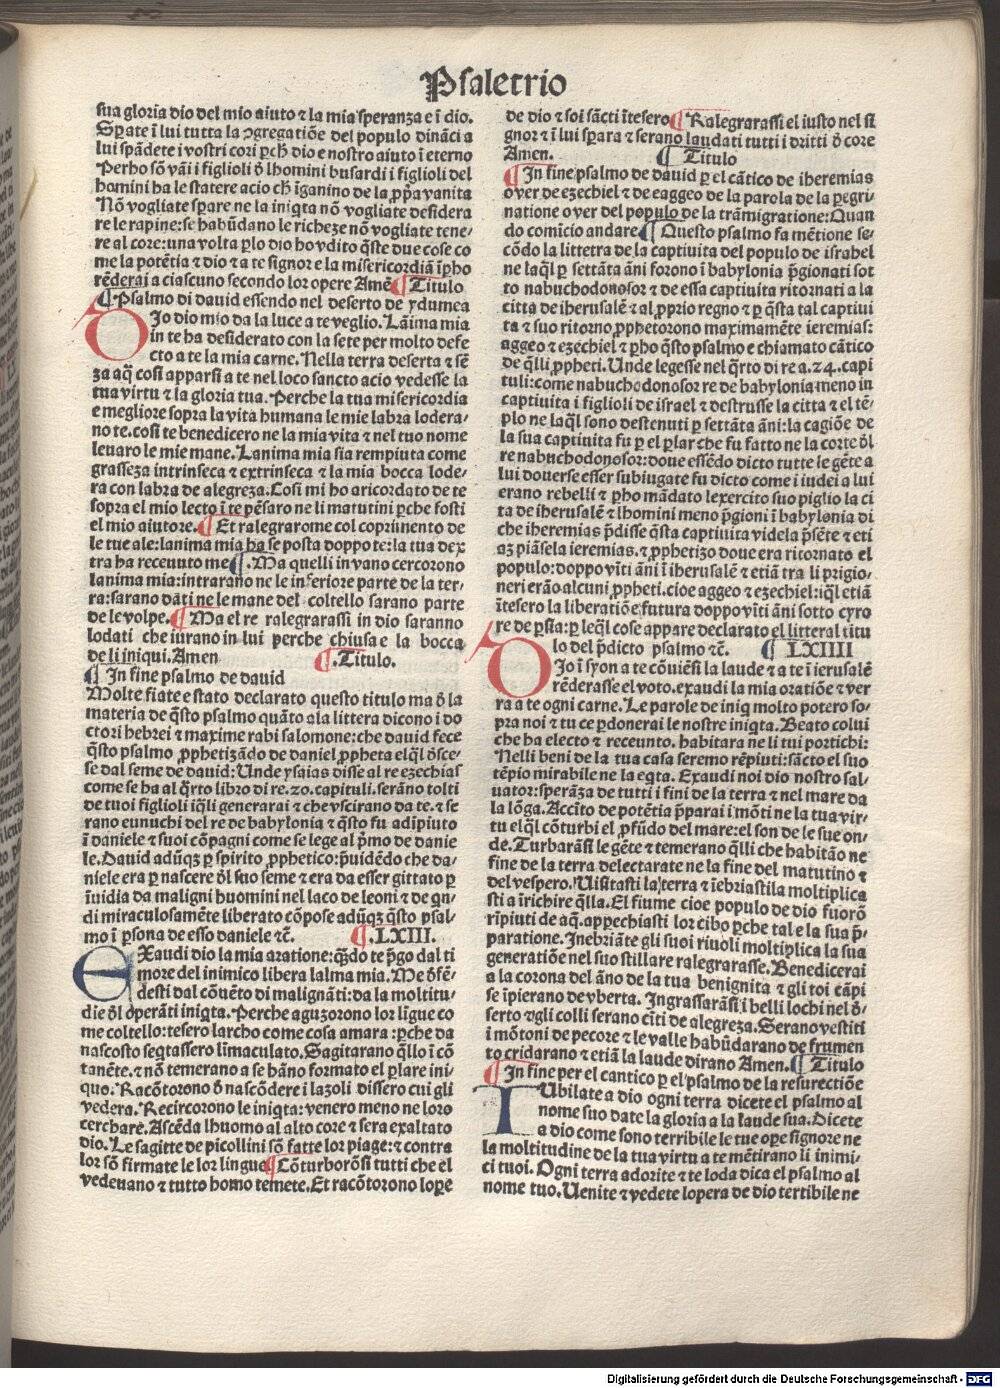 Psaletrio
sua gloria dio del mio aiuto ⁊ la mia speranza e ĩ dio.
Sꝑate ĩ lui tutta la ꝯgregatiõe del populo dinãci a
lui spãdete i vostri cori ꝑch̃ dio e nostro aiuto ĩ eterno
Perho sõ vãi i figlioli ð lhomini busardi i figlioli del
homini ha le statere acio ch̃ ĩganino de la ꝓp̃a vanita
Nõ vogliate sꝑare ne la iniq̃ta nõ vogliate desidera
re le rapine: se habũdano le richeze nõ vogliate tene/
re al core: una volta ꝑlo dio ho vdito q̃ste due cose co
me la potẽtia ⁊ dio ⁊ a te signor e la misericordia ĩꝑho
rẽderai a ciascuno secondo lor opere Amẽ ¶ Titulo
¶ .Psalmo di david essendo nel deserto de ydumea
OJo dio mio da la luce a te veglio. Lãima mia
in te ha desiderato con la sete per molto defe
cto a te la mia carne. Nella terra deserta ⁊ sẽ
za aq̃ così apparsi a te nel loco sancto acio vedesse la
tua virtu ⁊ la gloria tua. Perche la tua misericordia
e megliore sopra la vita humana le mie labra lodera/
no te. cosi te benedicero ne la mia vita ⁊ nel tuo nome
levaro le mie mane. Lanima mia sia rempiuta come
grasseza intrinseca ⁊ extrinseca ⁊ la mia bocca lode/
ra con labra de alegreza. Cosi mi ho aricordato de te
sopra el mio lecto ĩ te pẽsaro ne li matutini ꝑche fosti
el mio aiutore. ¶ Et ralegrarome col copriũnento de
le tue ale: lanima mia ha se posta doppo te: la tua dex
tra ha recevuto me ¶ .Ma quelli in vano cercorono
lanima mia: intrarano ne le inferiore parte de la ter/
ra: sarano dati ne le mane del coltello sarano parte
de le volpe. ¶ Ma el re ralegrarassi in dio saranno
lodati che iurano in lui perche chiusa e la bocca
de li iniqui. Amen ¶ .Titulo.
¶ In fine psalmo de david
Molte fiate e stato declarato questo titulo ma ð la
materia de q̃sto psalmo quãto a la littera dicono i do
ctori hebrei ⁊ maxime rabi salomone: che david fece
q̃sto psalmo ꝓphetizãdo de daniel ꝓpheta elq̃l ðsce/
se dal seme de david: Unde ysaias disse al re ezechias
come se ha al q̃rto libro di re. 20. capituli. serãno tolti
de tuoi figlioli iq̃li generarai ⁊ che vscirano da te. ⁊ se
rano eunuchi del re de babylonia ⁊ q̃sto fu adĩpiuto
ĩ daniele ⁊ suoi cõpagni come se lege al p̃mo de danie
le. David adũqꝫ ꝑ spirito ꝓphetico: p̃uidẽdo che da/
niele era ꝑ nascere ðl suo seme ⁊ era da esser gittato ꝑ
ĩuidia da maligni huomini nel laco de leoni ⁊ de q̃n/
di miraculosamẽte liberato cõpose adũqꝫ q̃sto psal/
mo ĩ ꝑsona de esso daniele ⁊c̃. ¶ .LXIII.
EXaudi dio la mia aratione: qñdo te p̃go dal ti
more del inimico libera lalma mia. Me ðfẽ/
desti dal cõuẽto di malignãti: da la moltitu/
die ðl oꝑãti iniq̃ta. Perche aguzorono lor lĩgue co
me coltello: tesero larcho come cosa amara: ꝑche da
nascosto seq̃tassero lĩmaculato. Sagitarano q̃llo ĩ cõ
tanẽte. ⁊ nõ temerano a se hãno formato el ꝑlare ini/
quo. Racõtorono ð nascõdere i lazoli dissero cui gli
vedera. Recircorono le iniq̃ta: venero meno ne loro
cerchare. Ascẽda lhuomo al alto core ⁊ sera exaltato
dio. Le sagitte de picollini sõ fatte lor piage: ⁊ contra
lor sõ firmate le lor lingue ¶ Cõturborõsi tutti che el
vedevano ⁊ tutto homo temete. Et racõtorono loꝑe
de dio ⁊ soi sãcti ĩtesero ¶ Ralegrarassi el iusto nel si
gnor ⁊ ĩ lui sꝑara ⁊ serano laudati tutti i dritti ð core
Amen. ¶ Titulo
¶ In fine psalmo de david ꝑ el cãtico de iheremias
over de ezechiel ⁊ de eaggeo de la parola de la ꝑegri
natione over del populo de la trãmigratione: Quan
do comicio andare ¶ Questo psalmo fa mẽtione se/
cõdo la littetra de la captivita del populo de israhel
ne laq̃l ꝑ settãta ãni forono ĩ babylonia p̃gionati sot
to nabuchodonosor ⁊ de essa captivita ritornati a la
citta de iherusalẽ ⁊ al ꝓprio regno ⁊ ꝑ q̃sta tal captivi
ta ⁊ suo ritorno ꝓphetorono maximamẽte ieremias:
aggeo ⁊ ezechiel ⁊ ꝑho q̃sto psalmo e chiamato cãtico
de q̃lli ꝓpheti. Unde legesse nel q̃rto di re a. 24. capi
tuli: come nabuchodonosor re de babylonia meno in
captivita i figlioli de israel ⁊ destrusse la citta ⁊ el tẽ/
plo ne laq̃l sono destenuti ꝑ settãta ãni: la cagiõe de
la sua captivita fu ꝑ el ꝑlar che fu fatto ne la corte ðl
re nabuchodonosor: doue essẽdo dicto tutte le gẽte a
lui douerse esser subiugate fu dicto come i iudei a lui
erano rebelli ⁊ ꝑho mãdato lexercito suo piglio la ci
ta de iherusalẽ ⁊ lhomini meno p̃gioni ĩ babylonia di
che iheremias p̃disse q̃sta captivita videla p̃sẽte ⁊ eti
aꝫ piãsela ieremias. ⁊ ꝓphetizo doue era ritornato el
populo: doppo vĩti ãni ĩ iherusalẽ ⁊ etiã tra li prigio/
neri erão alcuni ꝓpheti. cioe aggeo ⁊ ezechiel: iq̃l etiã
ĩtesero la liberatiõe futura doppo vĩti ãni sotto cyro
re de ꝑsia: ꝑ leq̃l cose appare declarato el litteral titu
lo del p̃dicto psalmo ⁊c̃. ¶ LXIIII
OJo ĩ syon a te cõuiẽsi la laude ⁊ a te ĩ ierusalẽ
rẽderasse el voto. exaudi la mia oratiõe ⁊ ver
ra a te ogni carne. Le parole de iniq̃ molto potero so/
pra noi ⁊ tu ce ꝑdonerai le nostre iniq̃ta. Beato colui
che ha electo ⁊ receuuto. habitara ne li tui portichi:
Nelli beni de la tua casa seremo rẽpiuti: sãcto el suo
tẽpio mirabile ne la eq̃ta. Exaudi noi dio nostro sal/
uator: sperãza de tutti i fini de la terra ⁊ nel mare da
la lõga. Accĩto de potẽtia p̃parai i mõti ne la tua vir/
tu elq̃l cõturbi el ꝓfũdo del mare: el son de le sue on/
de. Turbarãsi le gẽte ⁊ temerano q̃lli che habitão ne
fine de la terra delectarate ne la fine del matutino ⁊
del vespero. Uisitasti la terra ⁊ ĩebriastila moltiplica
sti a ĩrichire q̃lla. El fiume cioe populo de dio fuorõ
rĩpiuti de aq̃. appechiasti lor cibo ꝑche tal e la sua p̃/
paratione. Inebriãte gli suoi riuoli moltiplica la sua
generatiõe nel suo stillare ralegrarasse. Benedicerai
a la corona del ãno de la tua benignita ⁊ gli toi cãpi
se ĩpierano de vberta. Ingrassarãsi i belli lochi nel ð/
serto ⁊ gli colli serano cĩti de alegreza. Serano vestiti
i mõtoni de pecore ⁊ le valle habũdarano de frumen
to cridarano ⁊ etiã la laude dirano Amen. ¶ Titulo
¶ In fine per el cantico ꝑ el psalmo de la resurectiõe
IUbilate a dio ogni terra dicete el psalmo al
nome suo date la gloria a la laude sua. Dicete
a dio come sono terribile le tue oꝑe signore ne
la moltitudine de la tua virtu a te mẽtirano li inimi/
ci tuoi. Ogni terra adorite ⁊ te loda dica el psalmo al
nome tuo. Uenite ⁊ vedete lopera de dio tertibile ne
Digitalisierung gefördert durch die Deutsche Forschungsgemeinschaft - DFG